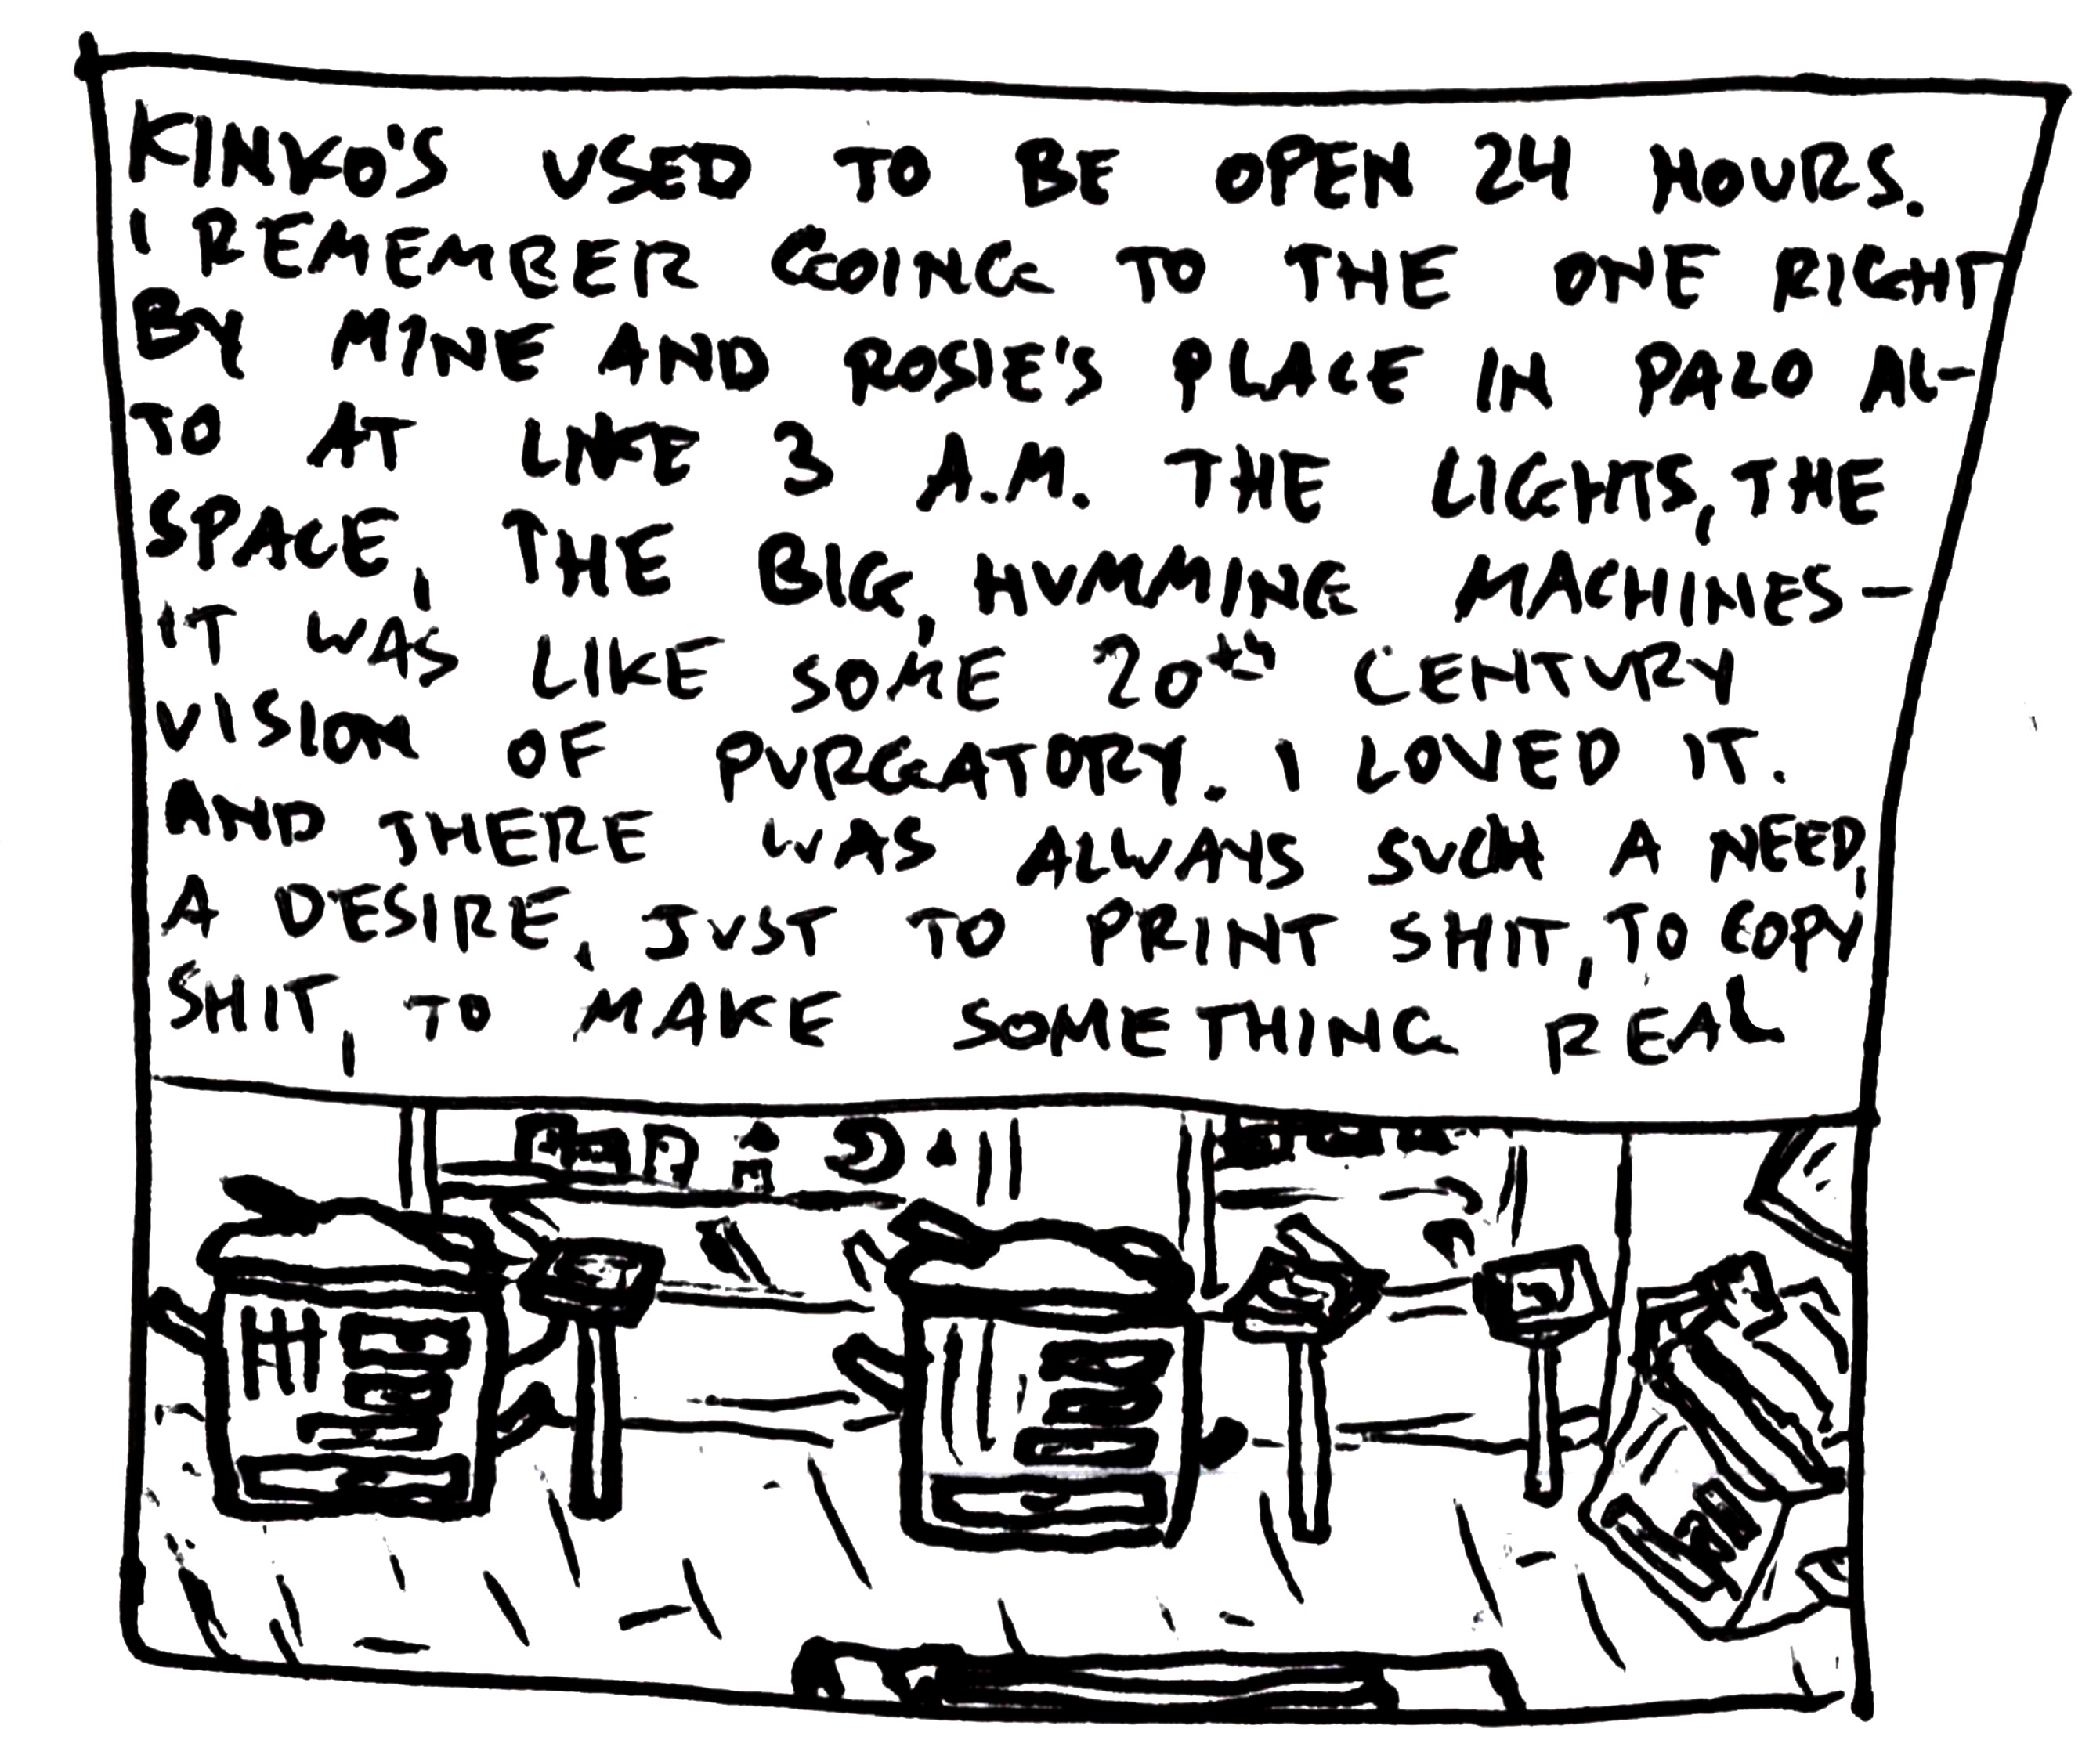 KINKO'S USED TO BE OPEN 24 HOURS.
I REMEMBER GOING TO THE ONE RIGHT
BY MINE AND ROSIE'S PLACE IN PALO AL-
TO AT LIKE 3 A.M. THE LIGHTS, THE
SPACE, THE BIG, HUMMING MACHINES-
IT WAS LIKE SOME 20th CENTURY
VISION OF PURGATORY. I LOVED IT.
AND THERE WAS ALWAYS SUCH A NEED,
A DESIRE, JUST TO PRINT SHIT, TO COPY
SHIT, TO MAKE SOMETHING REAL